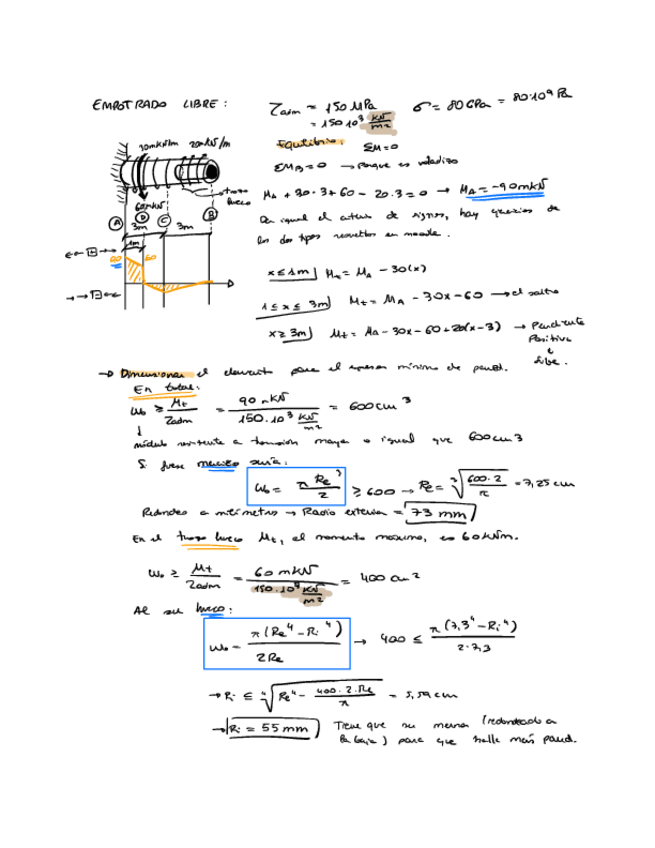 EMPOTRADO LIBRE:
τadm = 150 MPa
= 150·10³ kN/m²
G = 80 GPa = 80·10⁹ Pa
30mkN/m 20kN/m
Equilibrio: ΣM=0
ΣMB=0 → porque es voladizo
trozo hueco
60mkN
MA + 30·3+60 - 20·3=0 → MA = -90mkN
A D C B
3m 3m
1m
Da igual el criterio de signos, hay ejercicios de
los dos tipos resueltos en moodle.
90 60
x≤1m Mt = MA - 30(x)
1≤x≤3m Mt = MA - 30x-60 → el salto
x≥3m Mt = MA - 30x-60+20(x-3) → Pendiente
Positiva
→ Dimensionar el elemento para el espesor mínimo de pared.
En total:
W₀ ≥ Mt/τadm = 90 mkN/(150·10³ kN/m²) = 600 cm³
módulo resistente a torsión mayor o igual que 600 cm3
Si fuese macizo sería:
W₀ = π Re³/2 ≥ 600 → Re = ³√(600·2/π) = 7,25 cm
Redondeo a milímetros → Radio exterior = 73 mm
En el trozo hueco Mt, el momento máximo, es 60kNm.
W₀ ≥ Mt/τadm = 60 mkN/(150·10⁴ kN/m²) = 400 cm²
Al ser hueco:
W₀ = π(Re⁴ - Ri⁴)/2Re → 400 ≤ π(7,3⁴ - Ri⁴)/2·7,3
→ Ri ≤ ⁴√(Re⁴ - 400·2·Re/π) = 5,59 cm
→ Ri = 55 mm Tiene que ser menor (redondeado a
la baja) para que halle más pared.